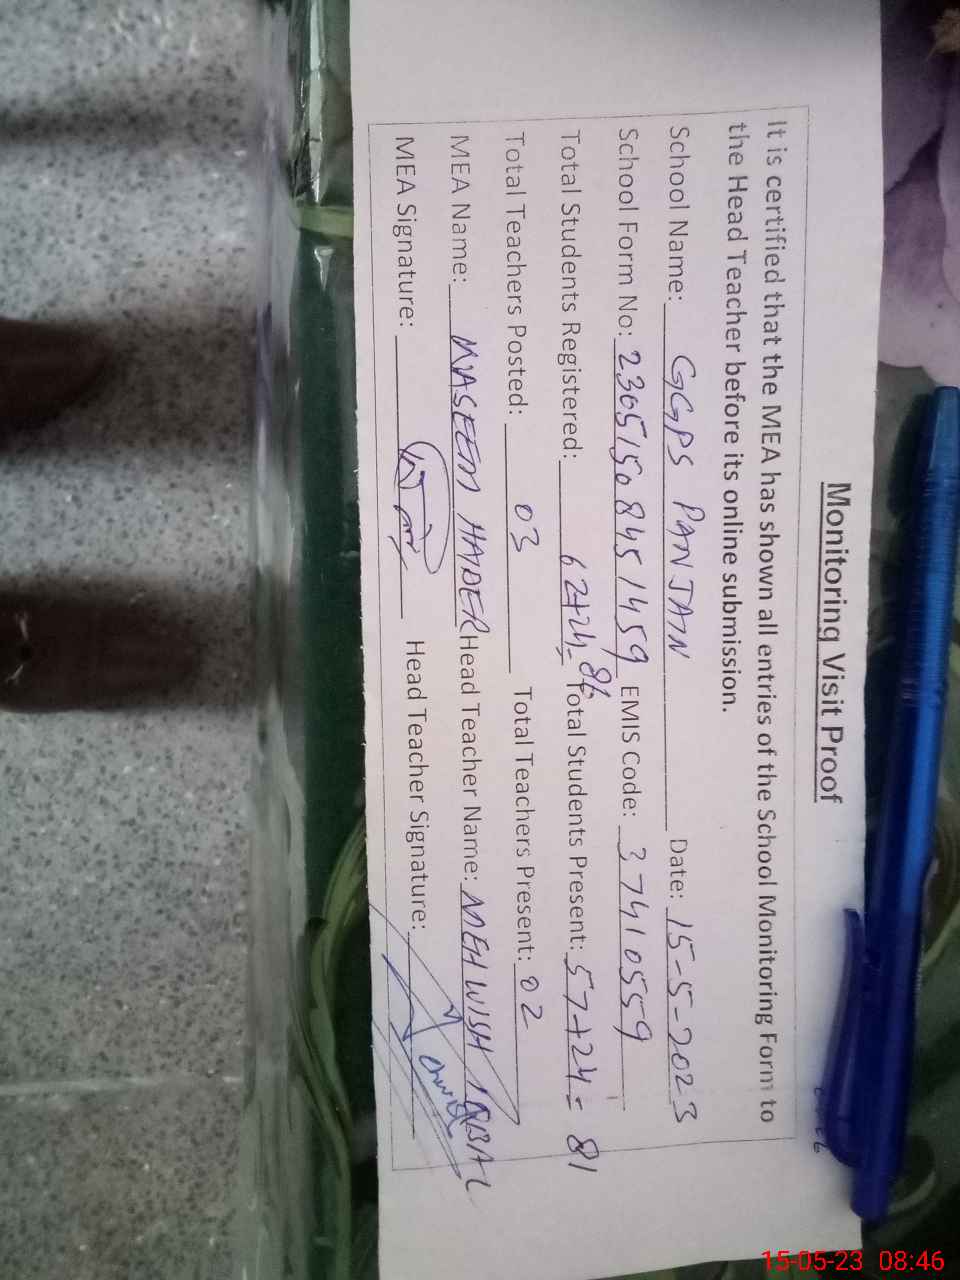 Monitoring Visit Proof
It is certified that the MEA has shown all entries of the School Monitoring Form to
the Head Teacher before its online submission.
School Name: GGPS PANJAIN Date: 15-5-2023
School Form No: 23051508451459 EMIS Code: 37410559
Total Students Registered: 62+24= 86 Total Students Present: 57+24= 81
Total Teachers Posted: 03 Total Teachers Present: 02
MEA Name: WASEEM HAIDER Head Teacher Name: MEHWISH IQBAL
MEA Signature: Head Teacher Signature:
15-05-23 08:46